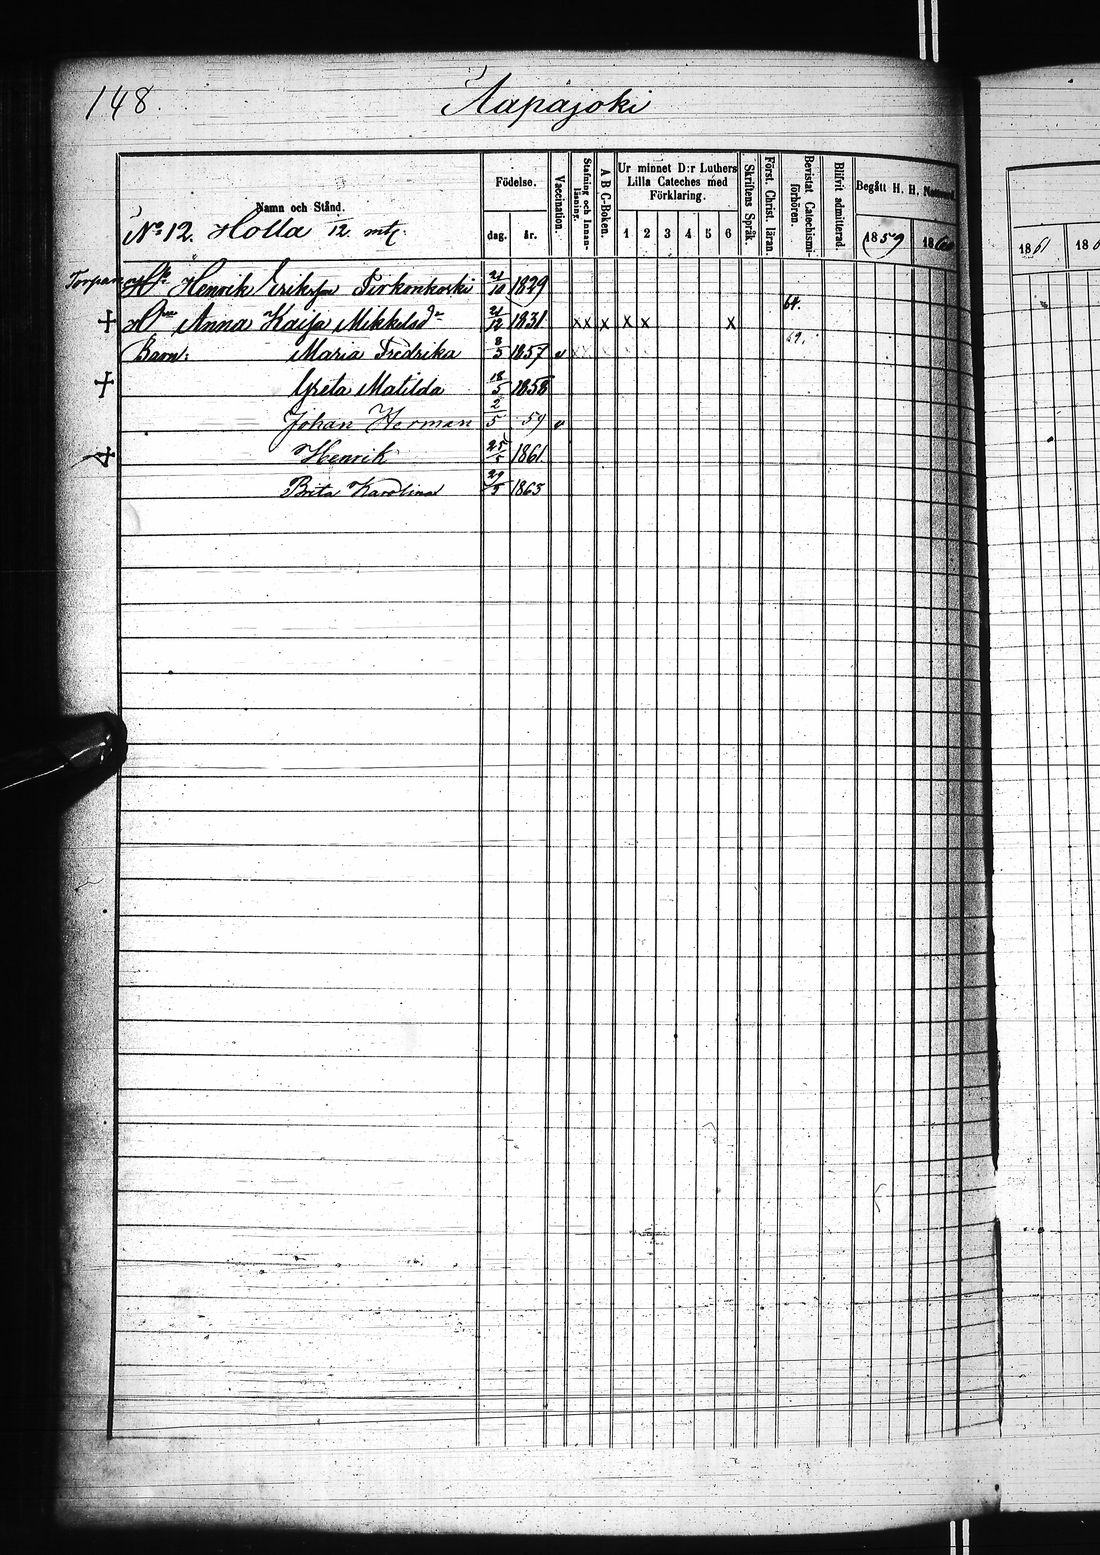 148.
Aapajoki
Namn och Stånd.
Födelse.
dag.
år.
Vaccination.
Stafning och Innan-läsning.
A B C-Boken.
Ur minnet D:r Luthers
Lilla Cateches med
Förklaring.
1 2 3 4 5 6
Skriftens Språk.
Först. Christ. läran.
Bevistat Catechismi-förhören.
Blifvit admitterad.
Begått H. H. Nattvard.
1859 1860
1861 18
No 12. Holla 1/12 mtl
Torpare Henrik Eriksson 21/10 1829
+ Anna Kaisa Mikkelsdr 21/12 1831 x x x x x x 64.
Barn: Maria Fredrika 8/3 1857 v
+ Greta Matilda 18/5 1858
Johan Herman 2/5 59 v
+ Henrik 25/5 1861
Brita Karolina 29/5 1865